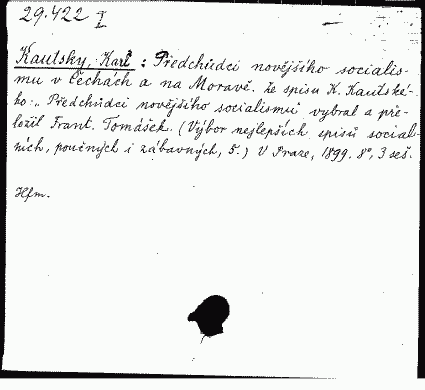 29.422 I
Kautsky, Karl : Předchůdci novějšího socialis-
mu v Čechách a na Moravě. Ze spisu K. Kautské-
ho „Předchůdci novějšího socialismu" vybral a pře-
ložil Frant. Tomášek. (Výbor nejlepších spisů sociál-
ních, poučných i zábavných, 5.) V Praze, 1899. 8°, 3 seš.
Hfm.